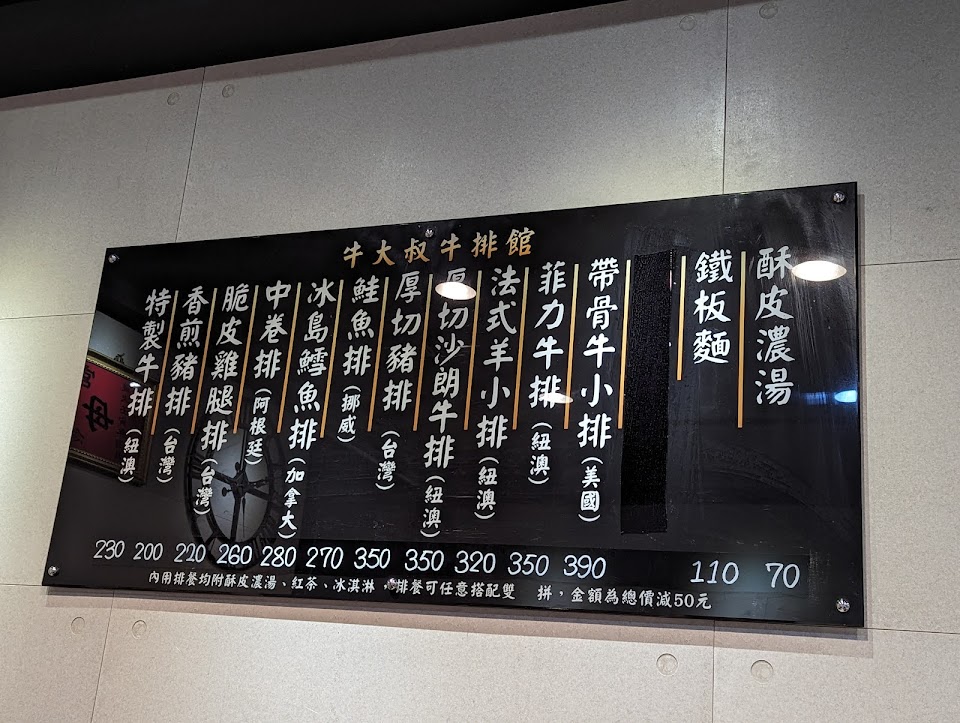 牛大叔牛排館
酥皮濃湯 70
鐵板麵 110
帶骨牛小排（美國） 390
菲力牛排（紐澳） 350
法式羊小排（紐澳） 320
厚切沙朗牛排（紐澳） 350
厚切豬排（台灣） 350
鮭魚排（挪威） 270
冰島鱈魚排（加拿大） 280
中卷排（阿根廷） 260
脆皮雞腿排（台灣） 220
香煎豬排（台灣） 200
特製牛排（紐澳） 230
內用排餐均附酥皮濃湯、紅茶、冰淇淋 排餐可任意搭配雙 拼，金額為總價減50元